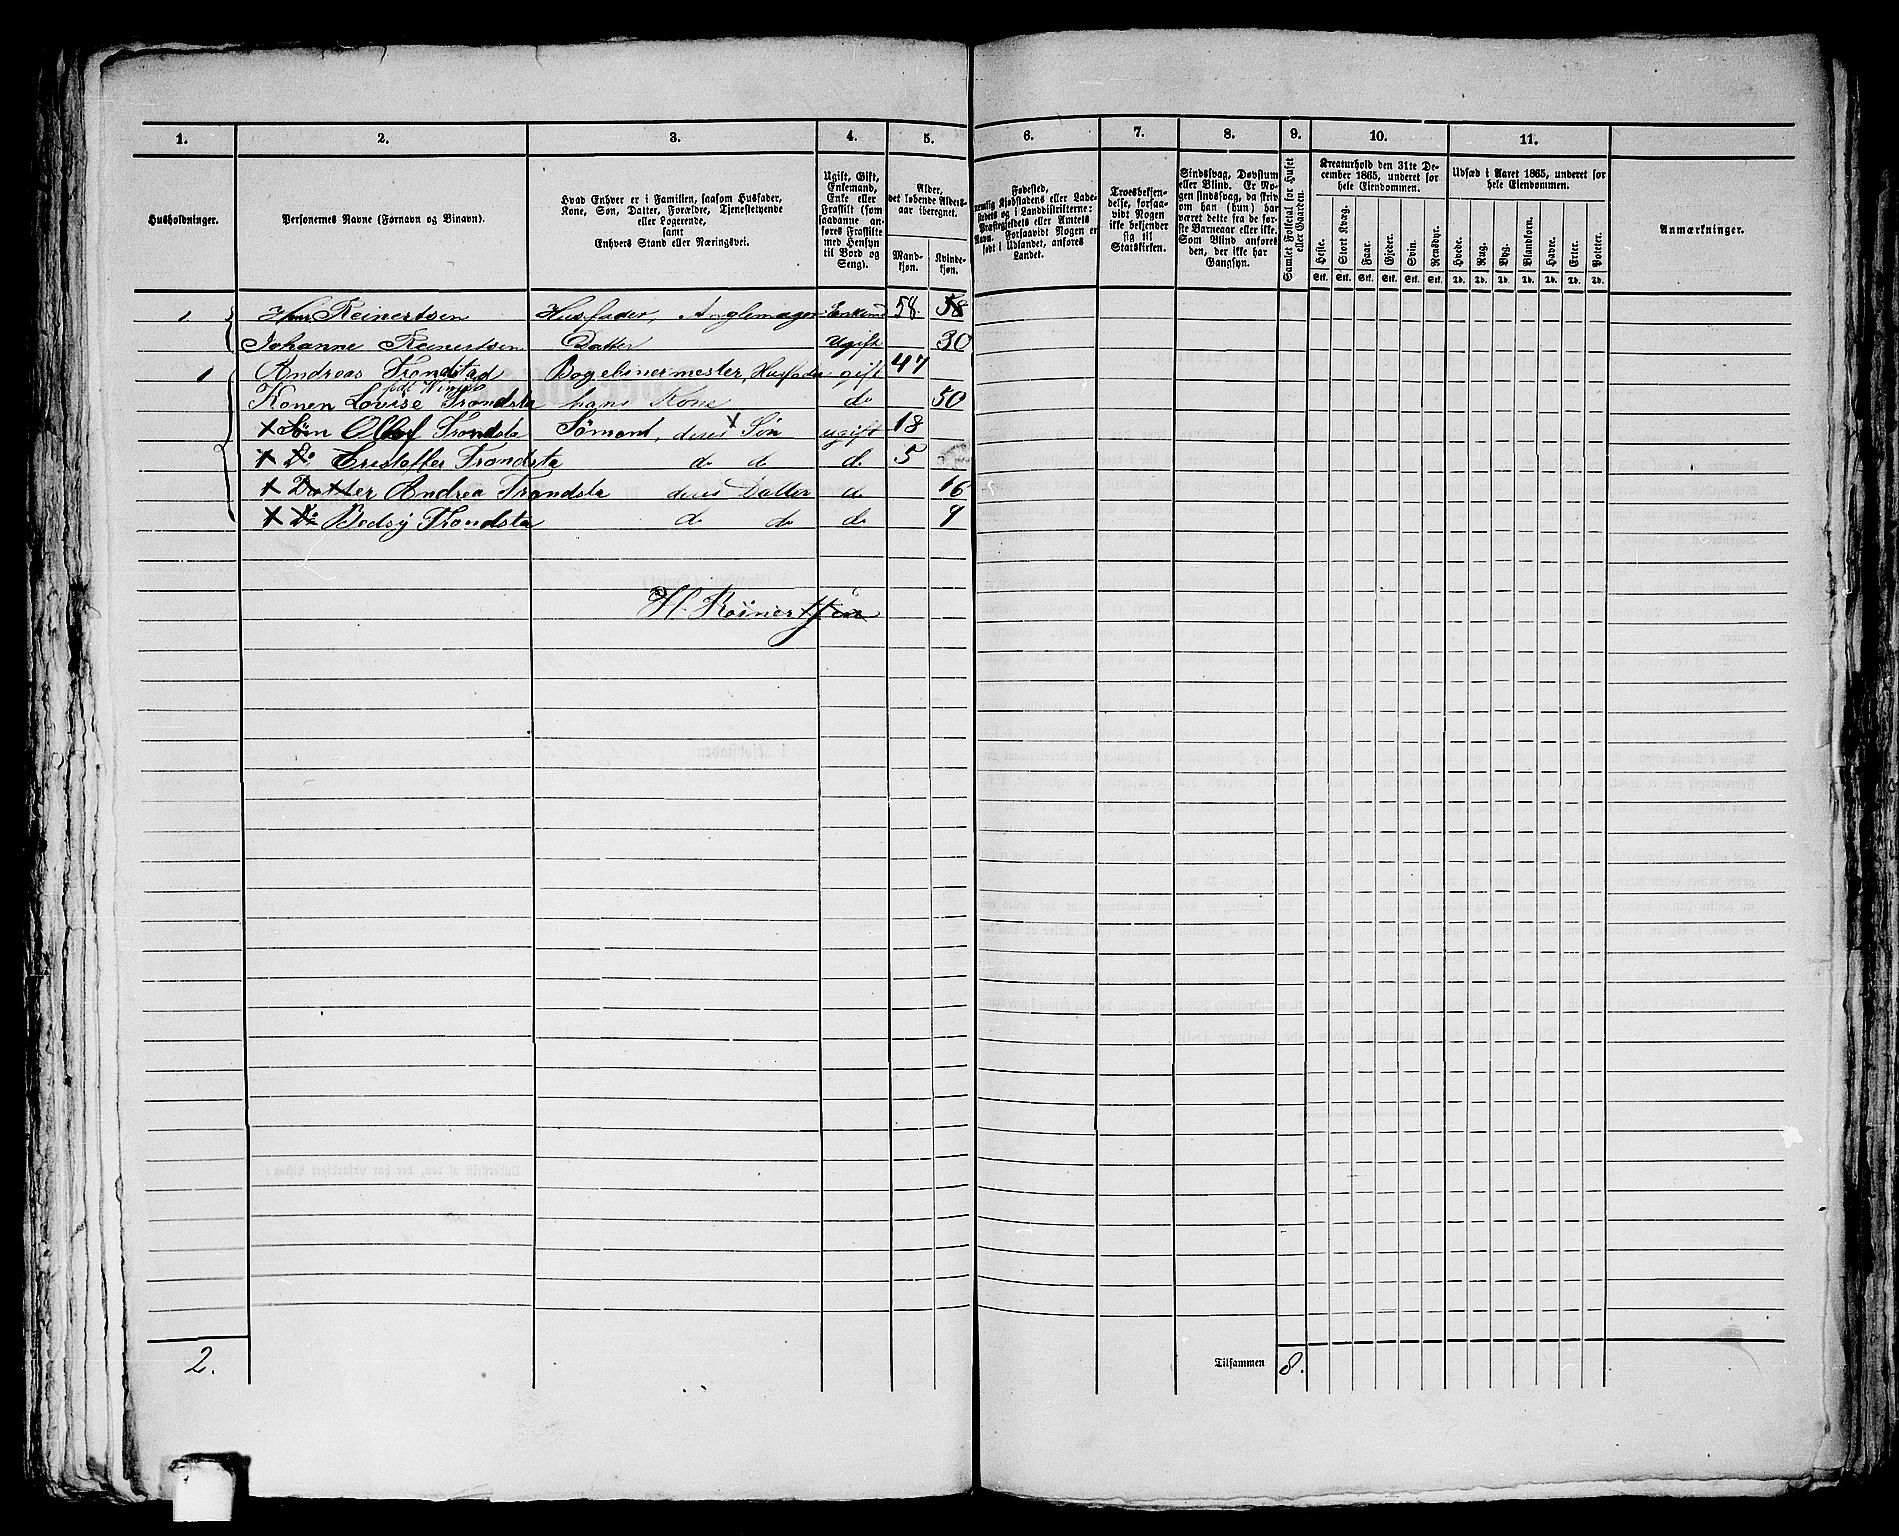 1. 2. 3. 4. 5. 6. 7. 8. 9. 10. 11.
Husholdninger.
Personernes Navne (Fornavn og Binavn).
Hvad Enhver er i Familien, saasom Husfader,
Kone, Søn, Datter, Forældre, Tjenestetyende
eller Logerende,
samt
Enhvers Stand eller Næringsvei.
Ugift, Gift,
Enkemand,
Enke eller
Fraskilt (som
saadanne an-
føres Fraskilte
med Hensyn
til Bord og
Seng).
Alder,
det løbende Alders-
aar iberegnet.
Mand-
kjøn.
Kvinde-
kjøn.
Fødested,
nemlig Kjøbstadens eller Lade-
stedets og i Landdistrikterne:
Præstegjeldets eller Amtets
Navn. Forsaavidt Nogen er
født i Udlandet, anføres
Landet.
Troesbekjen-
delse, forsaa-
vidt Nogen
ikke bekjender
sig til
Statskirken.
Sindssvag, Døvstum
eller Blind. Er No-
gen sindssvag, da skriv
om han (hun) har
været dette fra de før-
ste Barneaar eller ikke.
Som Blind anføres
den, der ikke har
Gangsyn.
Samlet Folketal for Huset
eller Gaarden.
Kreaturhold den 31te De-
cember 1865, underet for
hele Eiendommen.
Heste. Stort Kvæg. Faar. Gjeder. Svin. Rensdyr.
Stk. Stk. Stk. Stk. Stk. Stk.
Udsæd i Aaret 1865, underet for
hele Eiendommen.
Hvede. Rug. Byg. Blandkorn. Havre. Erter. Poteter.
Td. Td. Td. Td. Td. Td. Td.
Anmærkninger.
1. Hans Reinertsen Husfader, Enkem 58. 58
Johanne Reinertsen Datter Ugift 30
1 Andreas Trondstad Husfader gift 47
Konen Lovise Trondsta hans Kone do 50
Søn Olluf Trondsta Sømand, deres Søn ugift 18
Do Cristoffer Trondsta do do do 5
Datter Andrea Trondsta deres Datter do 16
Do Bedsy Trondsta do do do 9
H. Reinertsen
2.
Tilsammen 8.